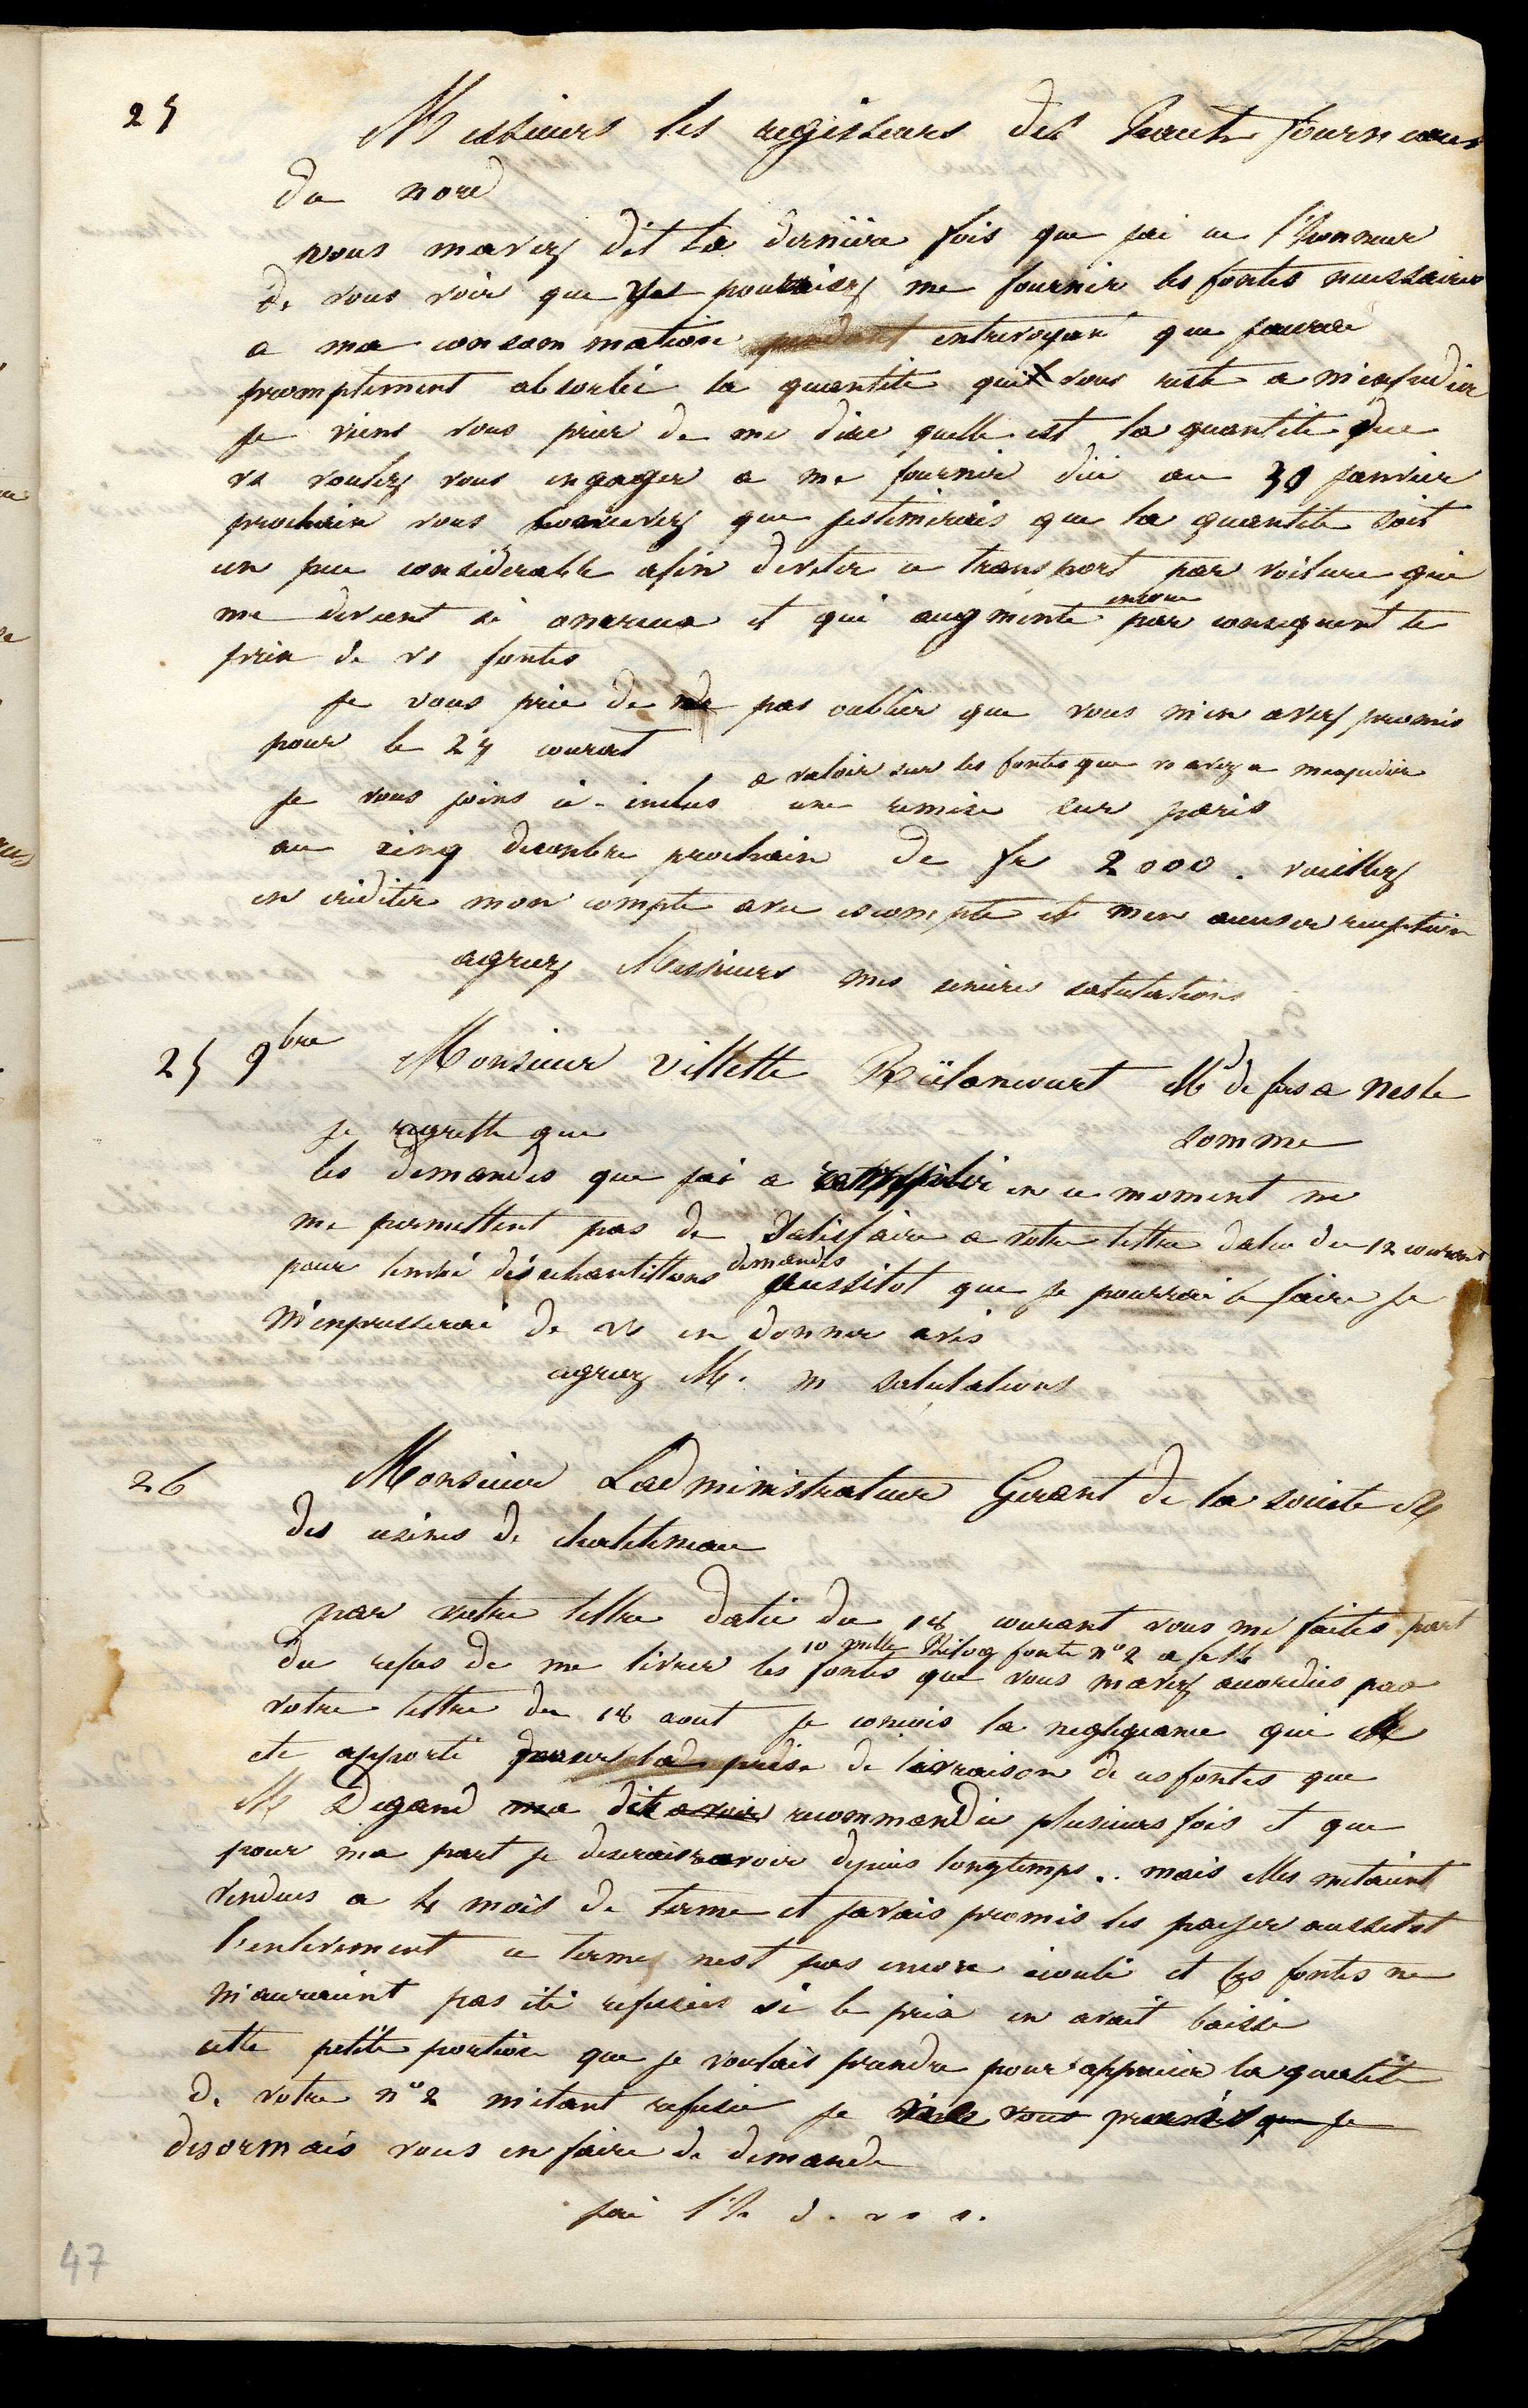 25 Messieurs les regisseurs des haut fourneaux
du nord
vous mavez dit la derniere fois que jai eu l'honneur
de vous voir que pourriez me fournir les fontes necessaires
a ma consommation entrevoyant que jaurai
promptement absorbée la quantité qui vous reste a m'expedier
je viens vous prier de me dire quelle est la quantité que
vs voulez vous engager a me fournir dici au 30 janvier
prochain vous concevrez que jestimerais que la quantité soit
un peu considerable afin deviter ce transport par voiture qui
me devient si onereux et qui augmente encore par consequent le
prix de vs fontes
je vous prie de ne pas oublier que vous m'en avez promis
pour le 25 courant
a valoir sur les fontes que vs avez a mexpedier
je vous joins ci-inclus une remise sur paris
au cinq decembre prochain de fr 2000. veuillez
en crediter mon compte avec escompte et men accuser reception
agreez Messieurs mes sinceres salutations
25 9bre Monsieur Villette Md de fers a Nesle
somme
je regrette que
les demandes que jai a remplir en ce moment ne
me permettent pas de satisfaire a votre lettre datée du 12 courant
pour lenvoi des echantillons demandés aussitot que je pourrai le faire je
m'enpresserai de vs en donner avis
agreez M. m salutations
26 Monsieur Ladministrateur Gerant de la societe
des usines de chatelineau
par votre lettre datée du 18 courant vous me faites part
du refus de me livrer les 10 mille Kilog fonte n° 2 a fr 16 fontes que vous mavez accordées par
votre lettre du 18 aout je concois la negligeance qui
ete apporté pour la prise de livraison de ces fontes que
M Degand ma dit avoir recommandée plusieurs fois et que
pour ma part je desirais avoir depuis longtemps.. mais elles metaient
vendues a 4 mois de terme et javais promis les payer aussitot
l'enlevement ce terme nest pas encore ecoulé et les fontes ne
m'auraient pas été refusées si le prix en avait baissé
cette petite portion que je voulais prendre pour apprecier la qualité
de votre n° 2 m'etant refusée je vous je
desormais vous en faire de demande
jai l'h d. v s s.
47